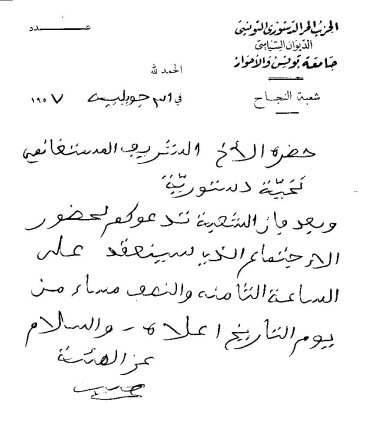 الحزب الحر الدستوري التونسي
عـــدد
الديوان السياسي
جامعة تونس والأحواز
الحمد لله
شعبة النجاح
في جويلية ١٩٥٧
حضرة الأخ الشريف المستغانمي
تحية دستورية
وبعد فإن الشعبة تدعوكم لحضور
الاجتماع الذي سينعقد على
الساعة الثامنة والنصف مساء من
يوم التاريخ اعلاه - والسلام
عن الهيئة